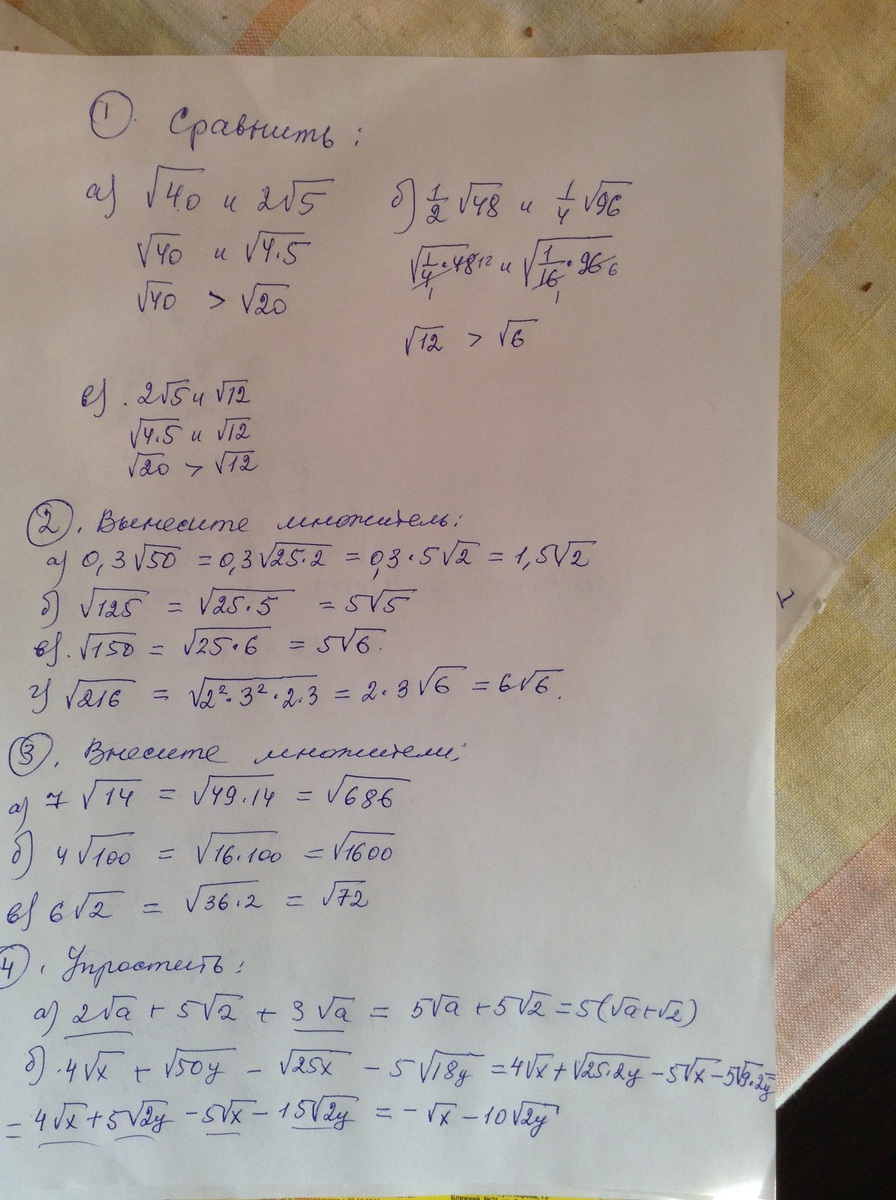 1. Сравнить:
а) √40 и 2√5
√40 и √4·5
√40 > √20
б) 1/2 √48 и 1/4 √96
√1/4·48 12 и √1/16·96 6
1 1
√12 > √6
в). 2√5 и √12
√4·5 и √12
√20 > √12
2. Вынесите множитель:
а) 0,3√50 = 0,3√25·2 = 0,3·5√2 = 1,5√2
б) √125 = √25·5 = 5√5
в). √150 = √25·6 = 5√6.
г) √216 = √2²·3²·2·3 = 2·3√6 = 6√6.
3. Внесите множители:
а) 7√14 = √49·14 = √686
б) 4√100 = √16·100 = √1600
в) 6√2 = √36·2 = √72
4. Упростить:
а) 2√a + 5√2 + 3√a = 5√a + 5√2 = 5(√a+√2)
б). 4√x + √50y - √25x - 5√18y = 4√x + √25·2y - 5√x - 5√9·2y =
= 4√x + 5√2y - 5√x - 15√2y = - √x - 10√2y